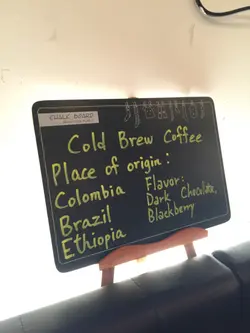 CHALK BOARD
Cold Brew Coffee
Place of origin :
Colombia
Brazil
Ethiopia
Flavor:
Dark Chocolate,
Blackberry